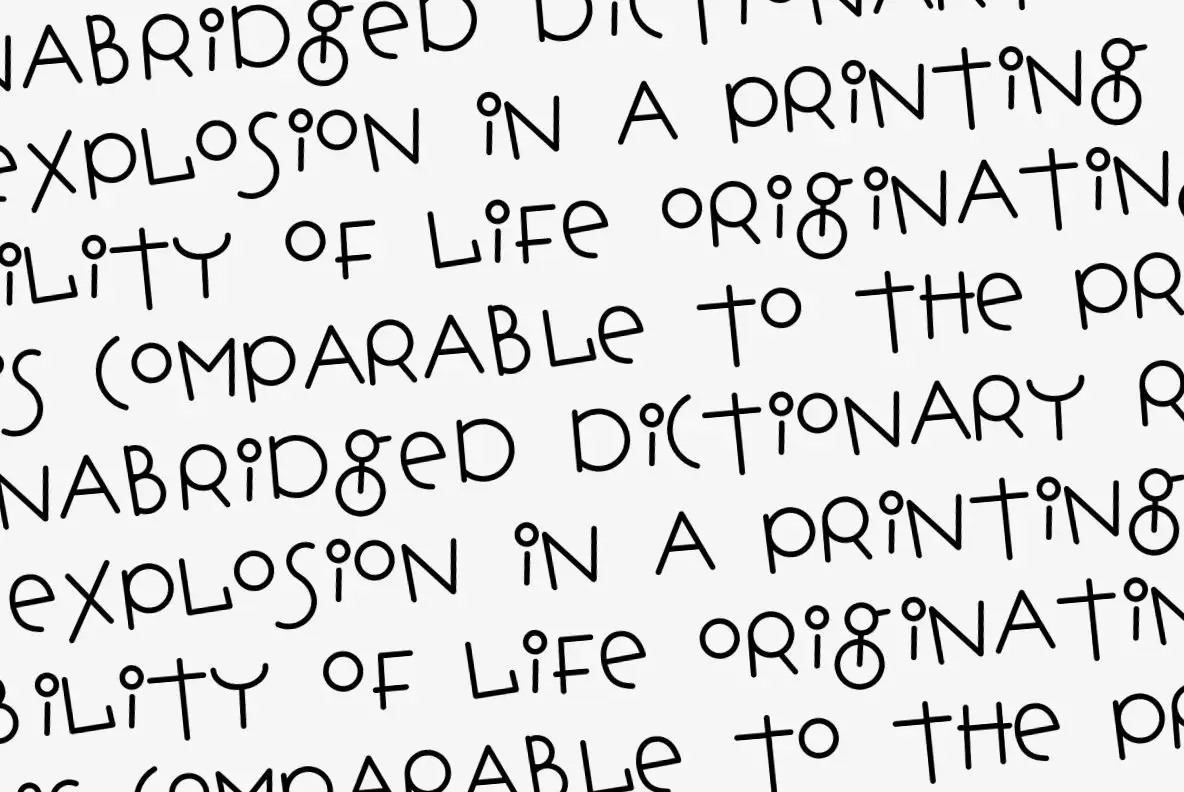 NABRiDgeD DiCTiONARY
eXPLOSiON iN A PRiNTiNg
iLiTY OF LiFe ORigiNATiN
S COMPARABLe TO THe PR
NABRiDgeD DiCTiONARY R
eXPLOSiON iN A PRiNTiNg
BiLiTY OF LiFe ORigiNATiN
iS COMPARABLe TO THe PR